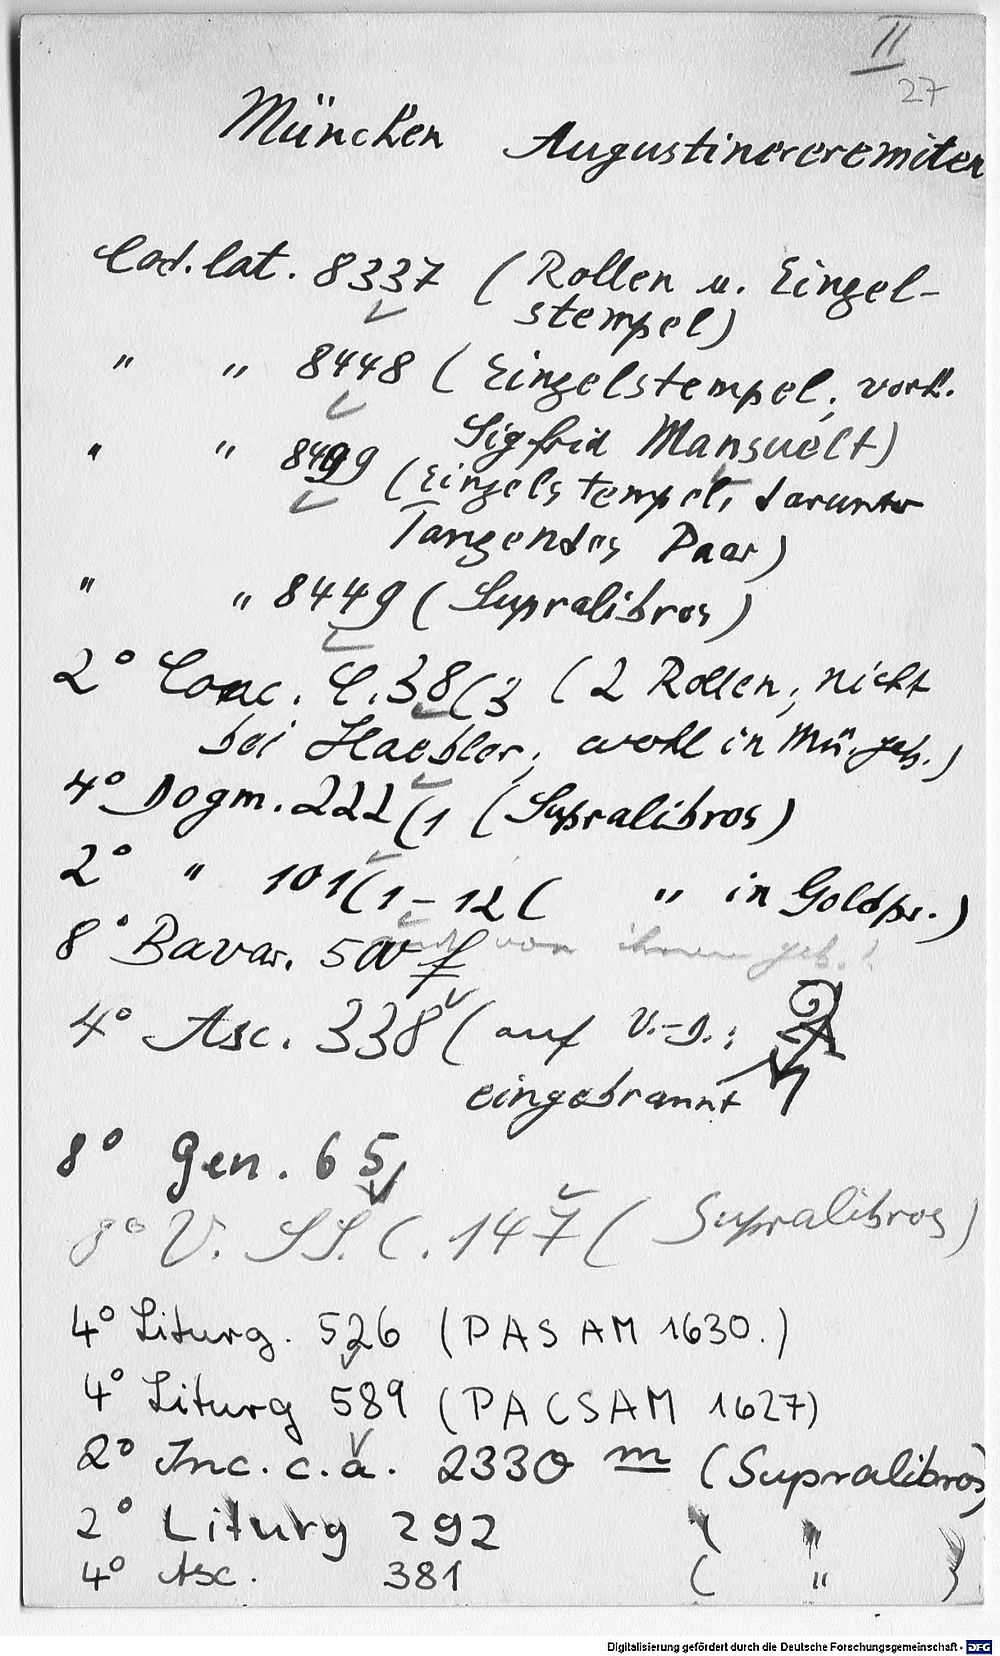 II
27
München Augustinereremiten
Cod. lat. 8337 (Rollen u. Einzel-
stempel)
" " 8448 (Einzelstempel; vork.
Sigfrid Mansuelt)
" " 8499 (Einzelstempel, darunter
Tanzendes Paar)
" " 8449 (Supralibros)
2° Conc. C. 38(3 (2 Rollen; nicht
bei Haebler; wohl in Mü. geb.)
4° Dogm. 222(1 (Supralibros)
2° " 101(1-12( " in Goldpr.)
8° Bavar. 500 f von ihnen geb.!
4° Asc. 338 (auf V.-D.:
eingebrannt
8° Gen. 65
8° V. SS. C. 147 (Supralibros)
4° Liturg. 526 (PASAM 1630.)
4° Liturg 589 (PACSAM 1627)
2° Inc. c. a. 2330 m (Supralibros)
2° Liturg 292 ( " )
4° Asc. 381 ( " )
Digitalisierung gefördert durch die Deutsche Forschungsgemeinschaft - DFG